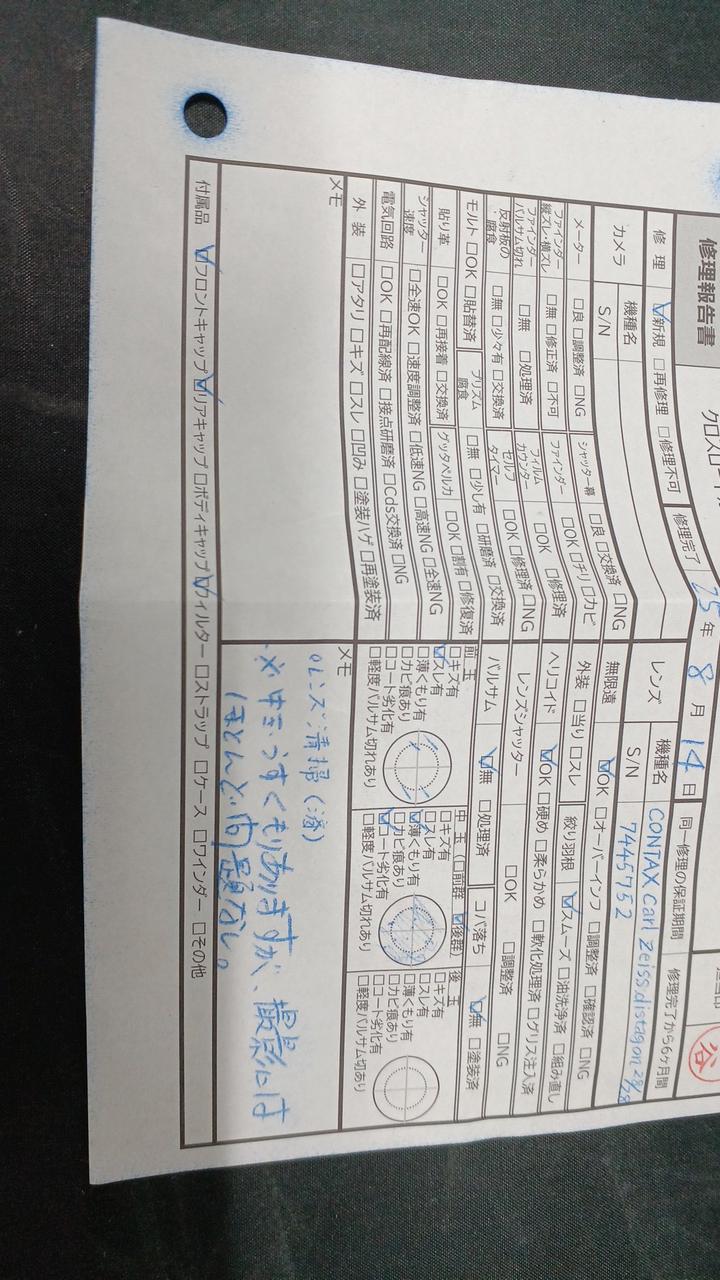 修理報告書
修理 ☑新規 □再修理 □修理不可 修理完了 25年 8月 14日 同一修理の保証期間 修理完了から6ヶ月間
谷
カメラ
機種名
S/N
メーター □良 □調整済 □NG
シャッター幕 □良 □交換済 □NG
ファインダー 縦ズレ・横ズレ □無 □修正済 □不可
ファインダー □OK □チリ □カビ
ファインダー バルサム切れ □無 □処理済
フィルムカウンター □OK □修理済
反射板の腐食 □無 □少々有 □交換済
セルフタイマー □OK □修理済 □NG
モルト □OK □貼替済
プリズム腐食 □無 □少し有 □研磨済 □交換済
貼り革 □OK □再接着 □交換済
グッタペルカ □OK □割有 □修復済
シャッター速度 □全速OK □速度調整済 □低速NG □高速NG □全速NG
電気回路 □OK □再配線済 □接点研磨済 □Cds交換済 □NG
外装 □アタリ □キズ □スレ □凹み □塗装ハゲ □再塗装済
メモ
レンズ
機種名 CONTAX Carl Zeiss distagon 28/2.8
S/N 7445752
無限遠 ☑OK □オーバーインフ □調整済 □確認済 □NG
外装 □当り □スレ
絞り羽根 ☑スムーズ □油洗浄済 □組み直し
ヘリコイド ☑OK □硬め □柔らかめ □軟化処理済 □グリス注入済
レンズシャッター □OK □調整済 □NG
バルサム ☑無 □処理済
コバ落ち ☑無 □塗装済
前玉
□キズ有
☑スレ有
□薄くもり有
□カビ痕あり
□コート劣化有
□軽度バルサム切れあり
中玉(□前群 ☑後群)
□キズ有
□スレ有
☑薄くもり有
□カビ痕あり
☑コート劣化有
□軽度バルサム切れあり
後玉
□キズ有
□スレ有
□薄くもり有
□カビ痕あり
□コート劣化有
□軽度バルサム切れあり
メモ
○レンズ清掃(済)
※中玉うすくもりありますが、撮影には
ほとんど問題なし。
付属品 ☑フロントキャップ ☑リアキャップ □ボディキャップ ☑フィルター □ストラップ □ケース □ワインダー □その他